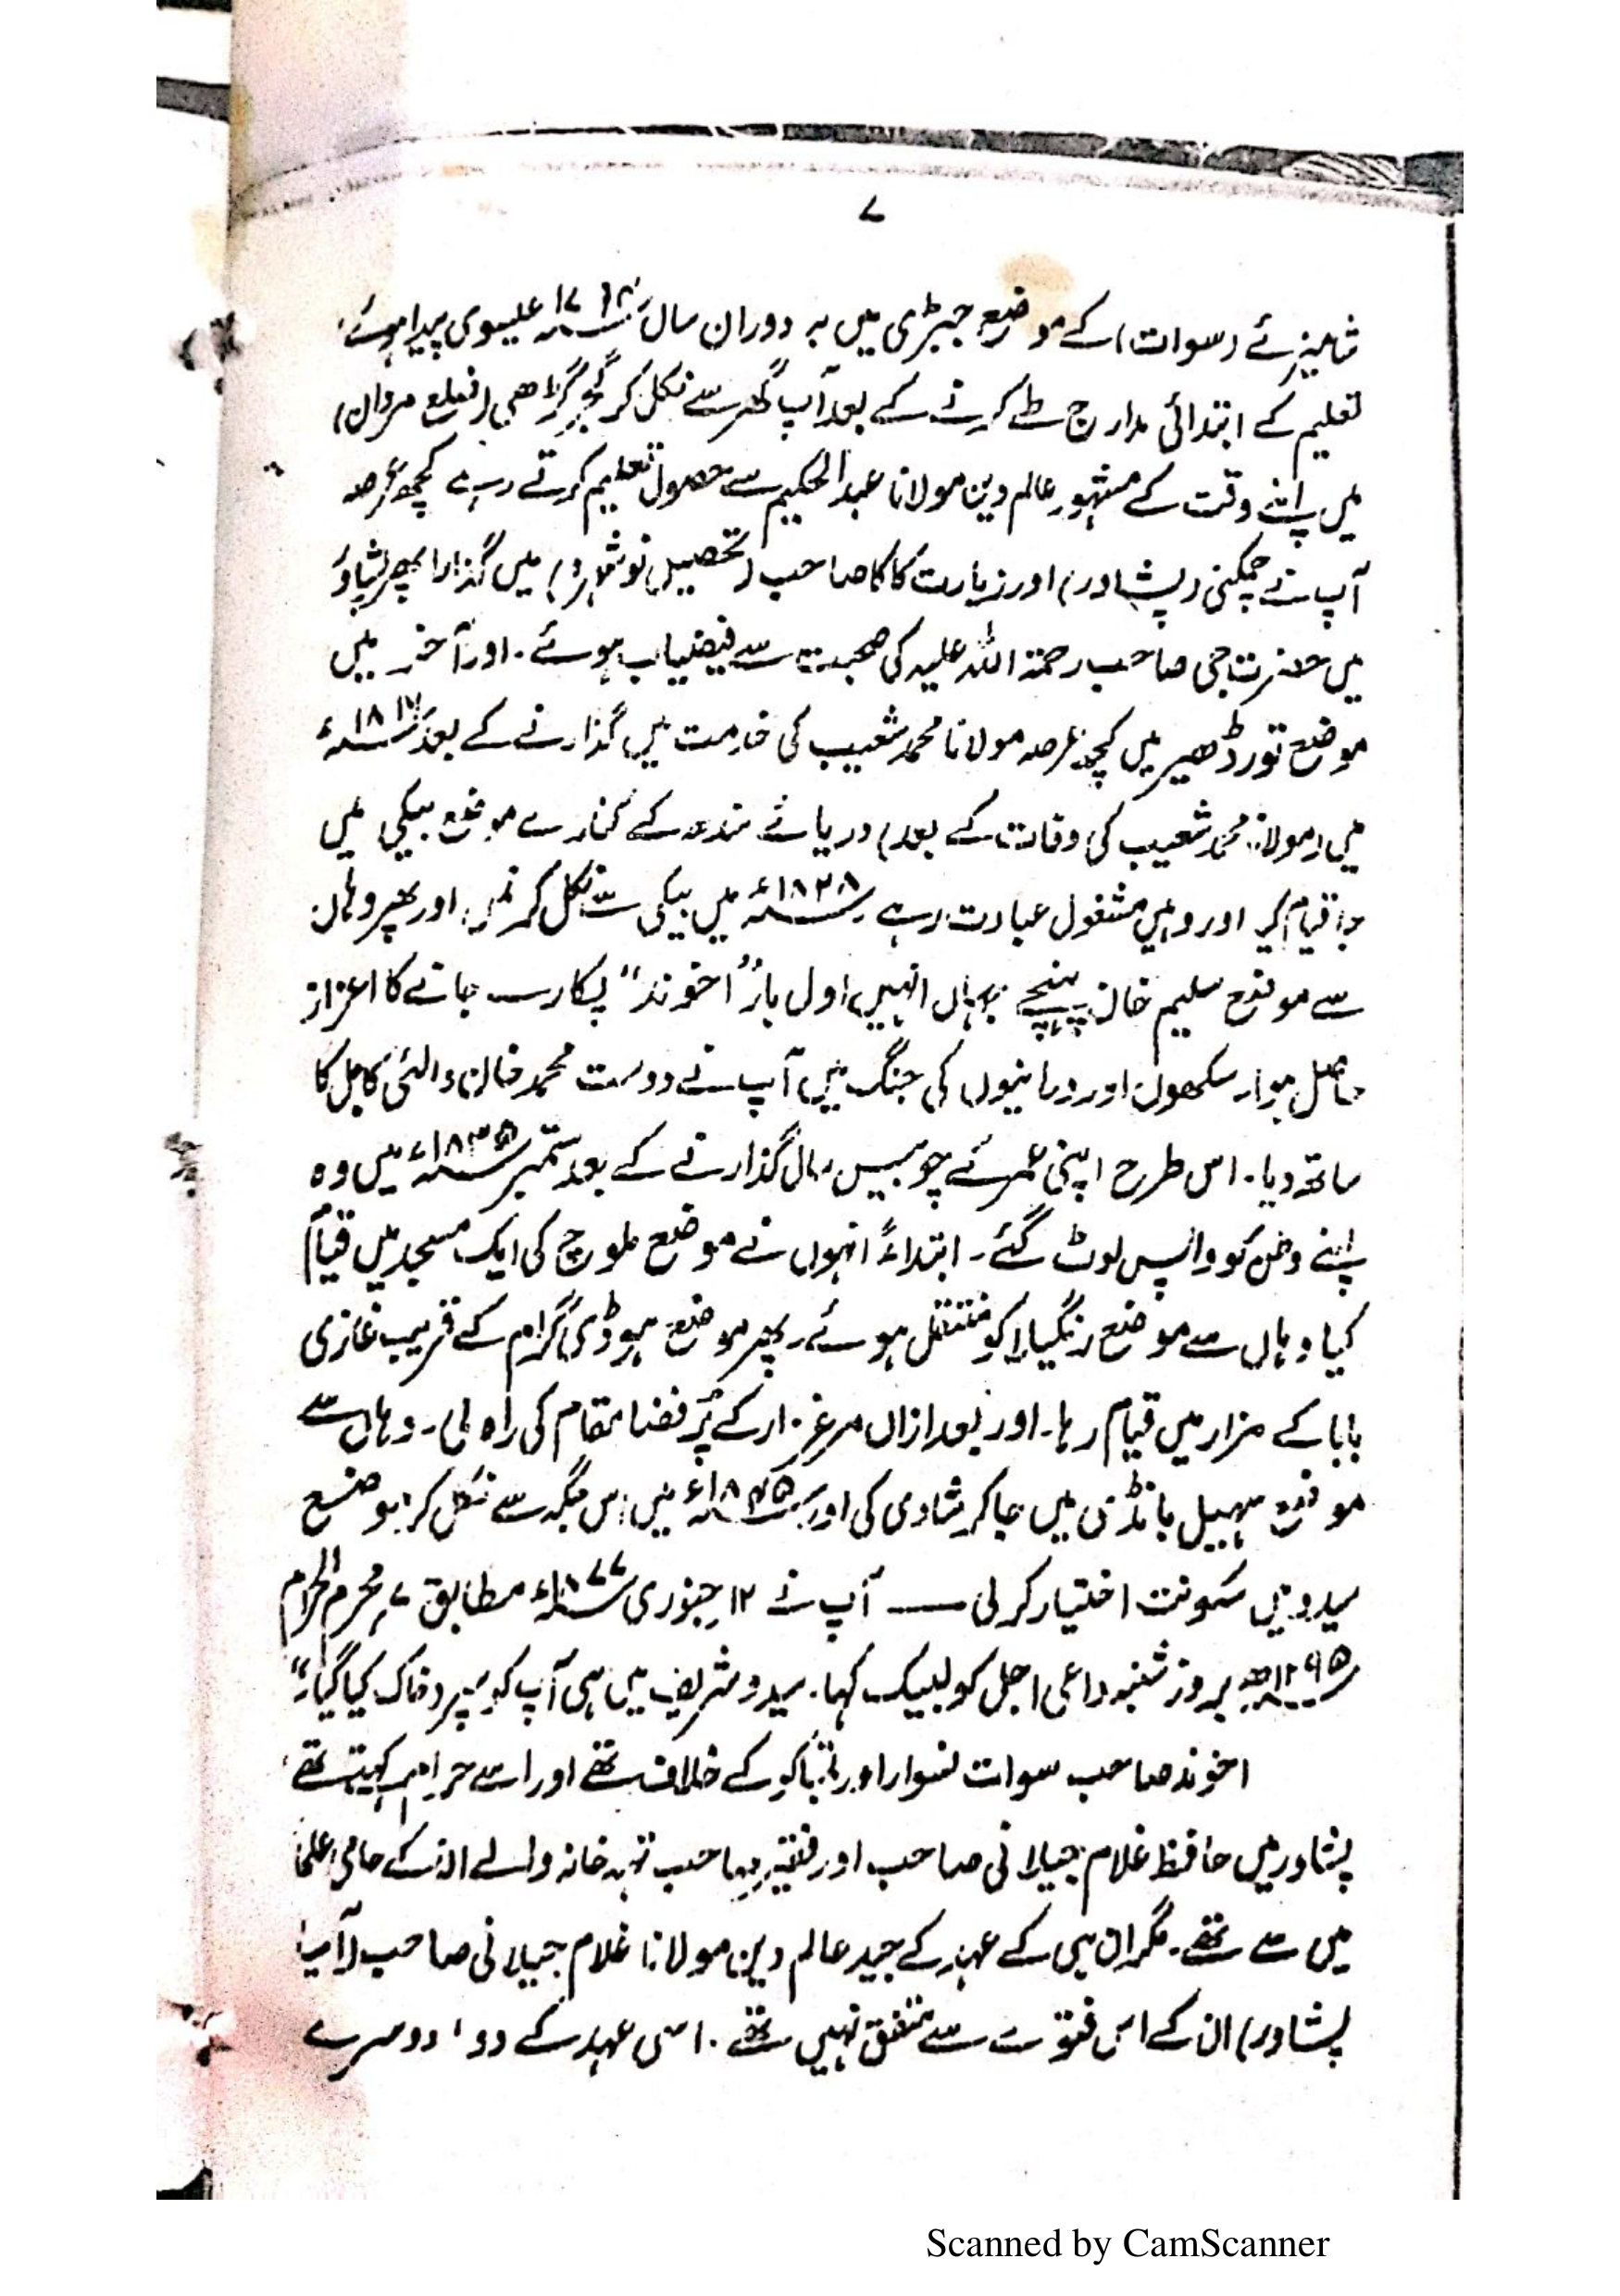 ۷
شامیزئے (سوات) کے موضع جبڑی میں بہ دوران سال ۱۷۸۴ء عیسوی پیدا ہوئے،
تعلیم کے ابتدائی مدارج طے کرنے کے بعد آپ گھر سے نکل کر گجر گڑھی (ضلع مردان)
میں اپنے وقت کے مشہور عالم دین مولانا عبدالحکیم سے حصول تعلیم کرتے رہے کچھ عرصہ
آپ نے چمکنی (پشاور) اور زیارت کاکا صاحب (تحصیل نوشہرہ) میں گذارا پھر پشاور
میں حضرت جی صاحب رحمۃ اللہ علیہ کی صحبت سے فیضیاب ہوئے۔ اور آخر میں
موضع تورڈھیر میں کچھ عرصہ مولانا محمد شعیب کی خدمت میں گذارنے کے بعد ۱۸۱۷ء
میں (مولانا محمد شعیب کی وفات کے بعد) دریائے سندھ کے کنارے موضع بیکی میں
جا قیام کیا اور وہیں مشغول عبادت رہے ۱۸۲۸ء میں بیکی سے نکل کر اور پھر وہاں
سے موضع سلیم خان پہنچے جہاں انہیں اول بار "اخوند" پکارے جانے کا اعزاز
حاصل ہوا۔ سکھوں اور درانیوں کی جنگ میں آپ نے دوست محمد خان والئی کابل کا
ساتھ دیا۔ اس طرح اپنی عمر کے چوبیس سال گذارنے کے بعد ستمبر ۱۸۳۵ء میں وہ
اپنے وطن کو واپس لوٹ گئے۔ ابتداءً انہوں نے موضع ملوچ کی ایک مسجد میں قیام
کیا وہاں سے موضع رنگیلا کو منتقل ہوئے۔ پھر موضع ہوڈی گرام کے قریب غازی
بابا کے مزار میں قیام رہا۔ اور بعد ازاں مرغزار کے پُر فضا مقام کی راہ لی۔ وہاں سے
موضع سپیل بانڈئی میں جا کر شادی کی اور ۱۸۴۵ء میں اس جگہ سے نکل کر موضع
سیدو میں سکونت اختیار کر لی —— آپ نے ۱۲ جنوری ۱۸۷۷ء مطابق ۷ محرم الحرام
۱۲۹۵ھ بروز شنبہ داعی اجل کو لبیک کہا۔ سیدو شریف میں ہی آپ کو سپرد خاک کیا گیا۔"
اخوند صاحب سوات نسوار اور تمباکو کے خلاف تھے اور اسے حرام کہتے تھے،
پشاور میں حافظ غلام جیلانی صاحب اور فقیر صاحب تہہ خانہ والے ان کے حامی علما
میں سے تھے۔ مگر ان ہی کے عہد کے جید عالم دین مولانا غلام جیلانی صاحب (آسیا
پشاور) ان کے اس فتوے سے متفق نہیں تھے۔ اسی عہد کے دو دوسرے
Scanned by CamScanner